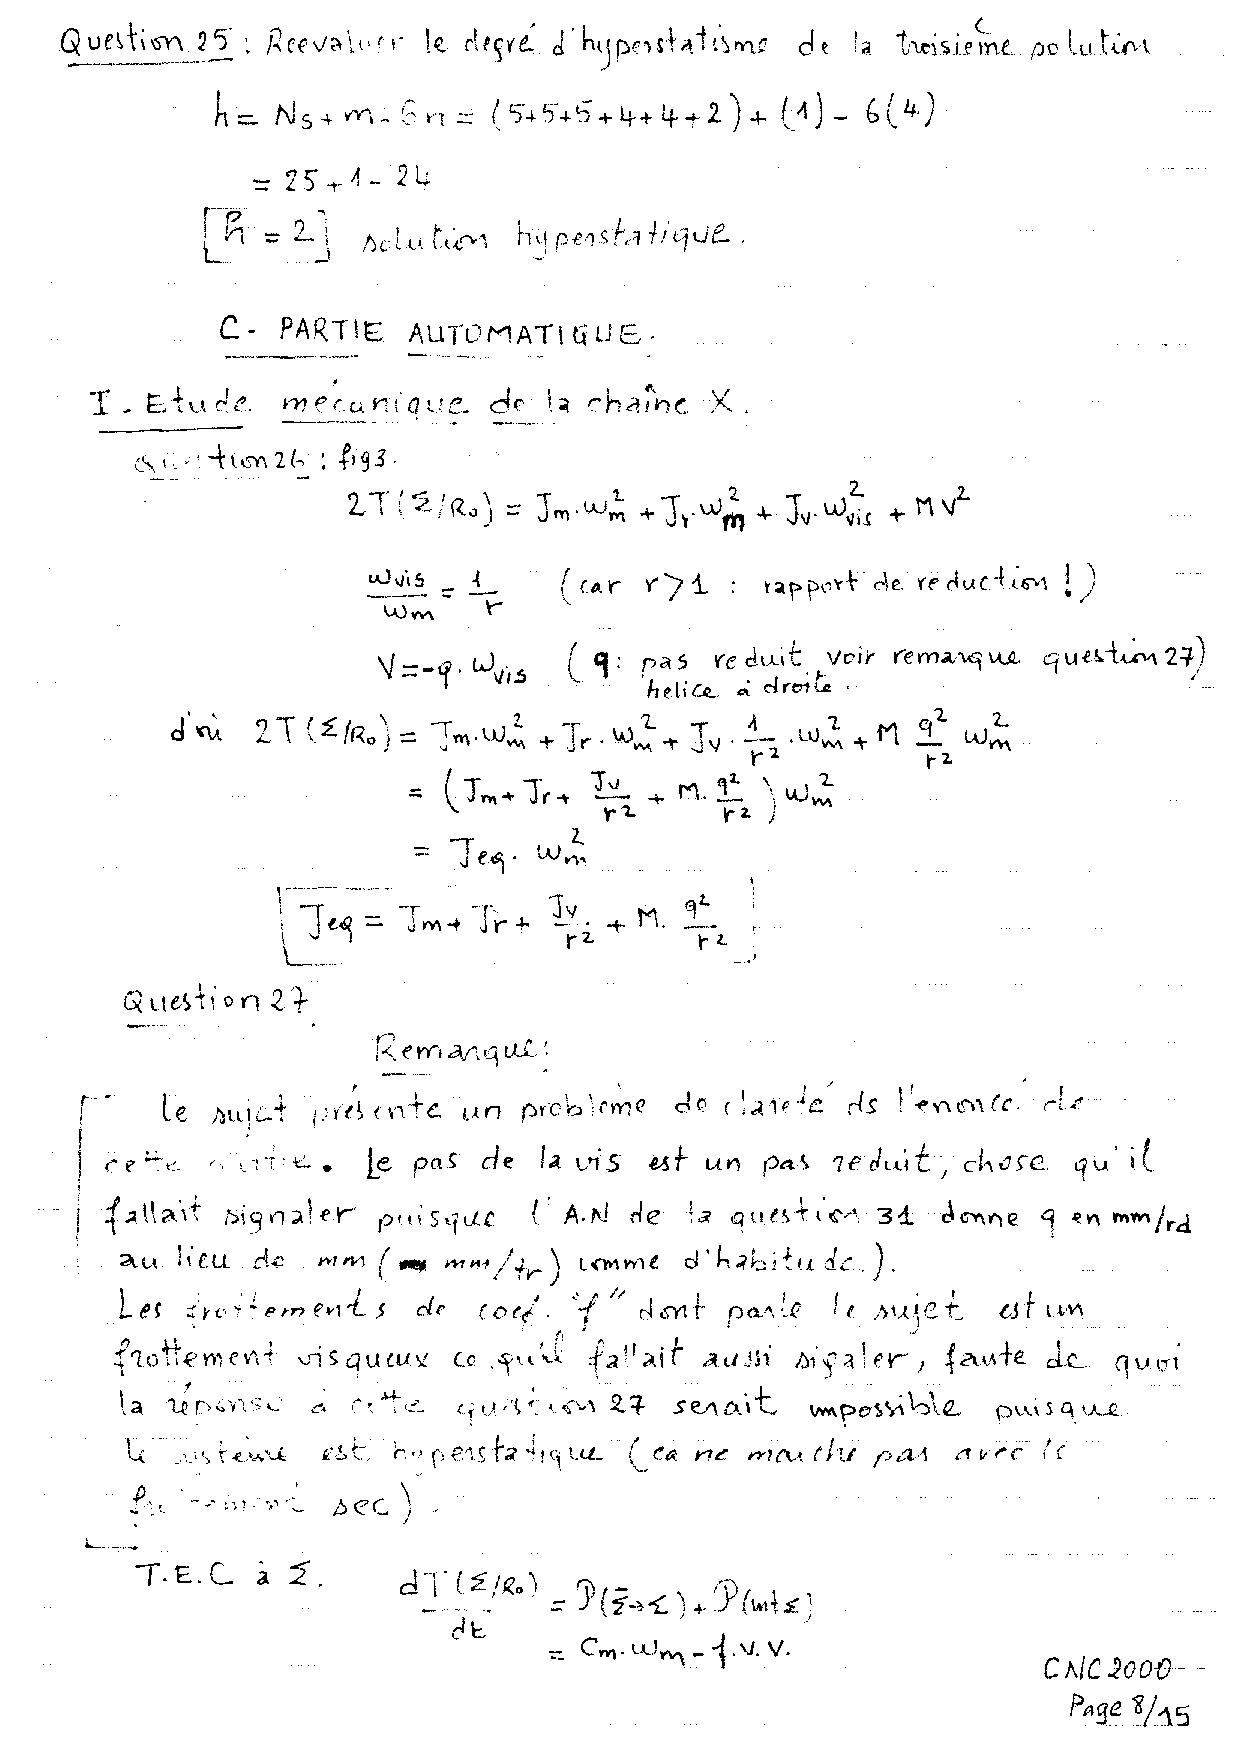 Question 25 : Reevaluer le degré d'hyperstatisme de la troisième solution
h = Ns + m - 6n = (5+5+5+4+4+2) + (1) - 6(4)
= 25 + 1 - 24
[h = 2] solution hyperstatique.
C - PARTIE AUTOMATIQUE.
I. Etude mécanique de la chaîne X.
Question 26 : fig3.
2T(Σ/R₀) = Jm.ωm² + Jr.ωm² + Jv.ωvis² + M V²
ωvis/ωm = 1/r (car r>1 : rapport de reduction !)
V = -q.ωvis (q : pas reduit voir remarque question 27)
helice à droite
d'où 2T(Σ/R₀) = Jm.ωm² + Jr.ωm² + Jv.1/r².ωm² + M q²/r² ωm²
= (Jm + Jr + Jv/r² + M.q²/r²) ωm²
= Jeq.ωm²
[Jeq = Jm + Jr + Jv/r² + M.q²/r²]
Question 27
Remarque :
Le sujet présente un problème de clareté ds l'enoncé de
cette partie. Le pas de la vis est un pas reduit, chose qu'il
fallait signaler puisque l'A.N de la question 31 donne q en mm/rd
au lieu de mm (mm/tr) comme d'habitude.).
Les frottements de coef. "f" dont parle le sujet est un
frottement visqueux ce qu'il fallait aussi sigaler, faute de quoi
la réponse à cette question 27 serait impossible puisque
le système est hyperstatique (ca ne marche pas avec le
frottement sec).
T.E.C à Σ. dT(Σ/R₀)/dt = P(Σ̄→Σ) + P(int Σ)
= Cm.ωm - f.V.V.
CNC 2000
Page 8/15